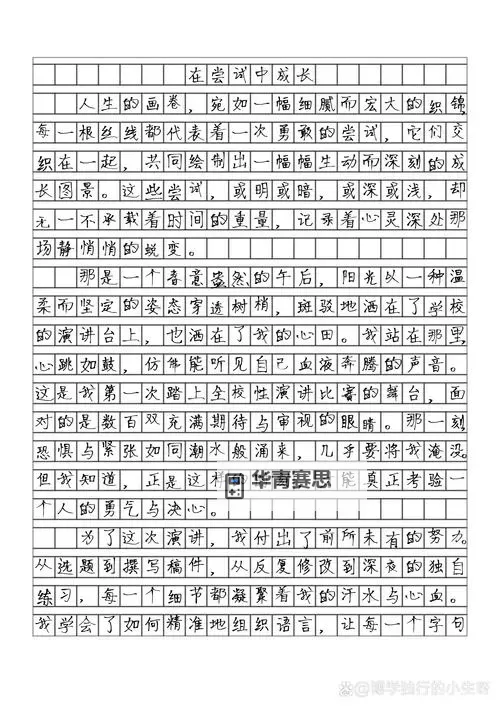 在尝试中成长
人生的画卷，宛如一幅细腻而宏大的织锦，
每一根丝线都代表着一次勇敢的尝试，它们交
织在一起，共同绘制出一幅幅生动而深刻的成
长图景。这些尝试，或明或暗，或深或浅，却
无一不承载着时间的重量，记录着心灵深处那
场静悄悄的蜕变。
那是一个春意盎然的午后，阳光以一种温
柔而坚定的姿态穿透树梢，斑驳地洒在了学校
的演讲台上，也洒在了我的心田。我站在那里，
心跳如鼓，仿佛能听见自己血液奔腾的声音。
这是我第一次踏上全校性演讲比赛的舞台，面
对的是数百双充满期待与审视的眼睛。那一刻
恐惧与紧张如同潮水般涌来，几乎要将我淹没。
但我知道，正是这样的 能真正考验一
华青赛思
个人的勇气与决心。
为了这次演讲，我付出了前所未有的努力。
从选题到撰写稿件，从反复修改到深夜的独自
练习，每一个细节都凝聚着我的汗水与心血。
我学会了如何精准地组织语言，让每一个字句
@博学独行的小生寄